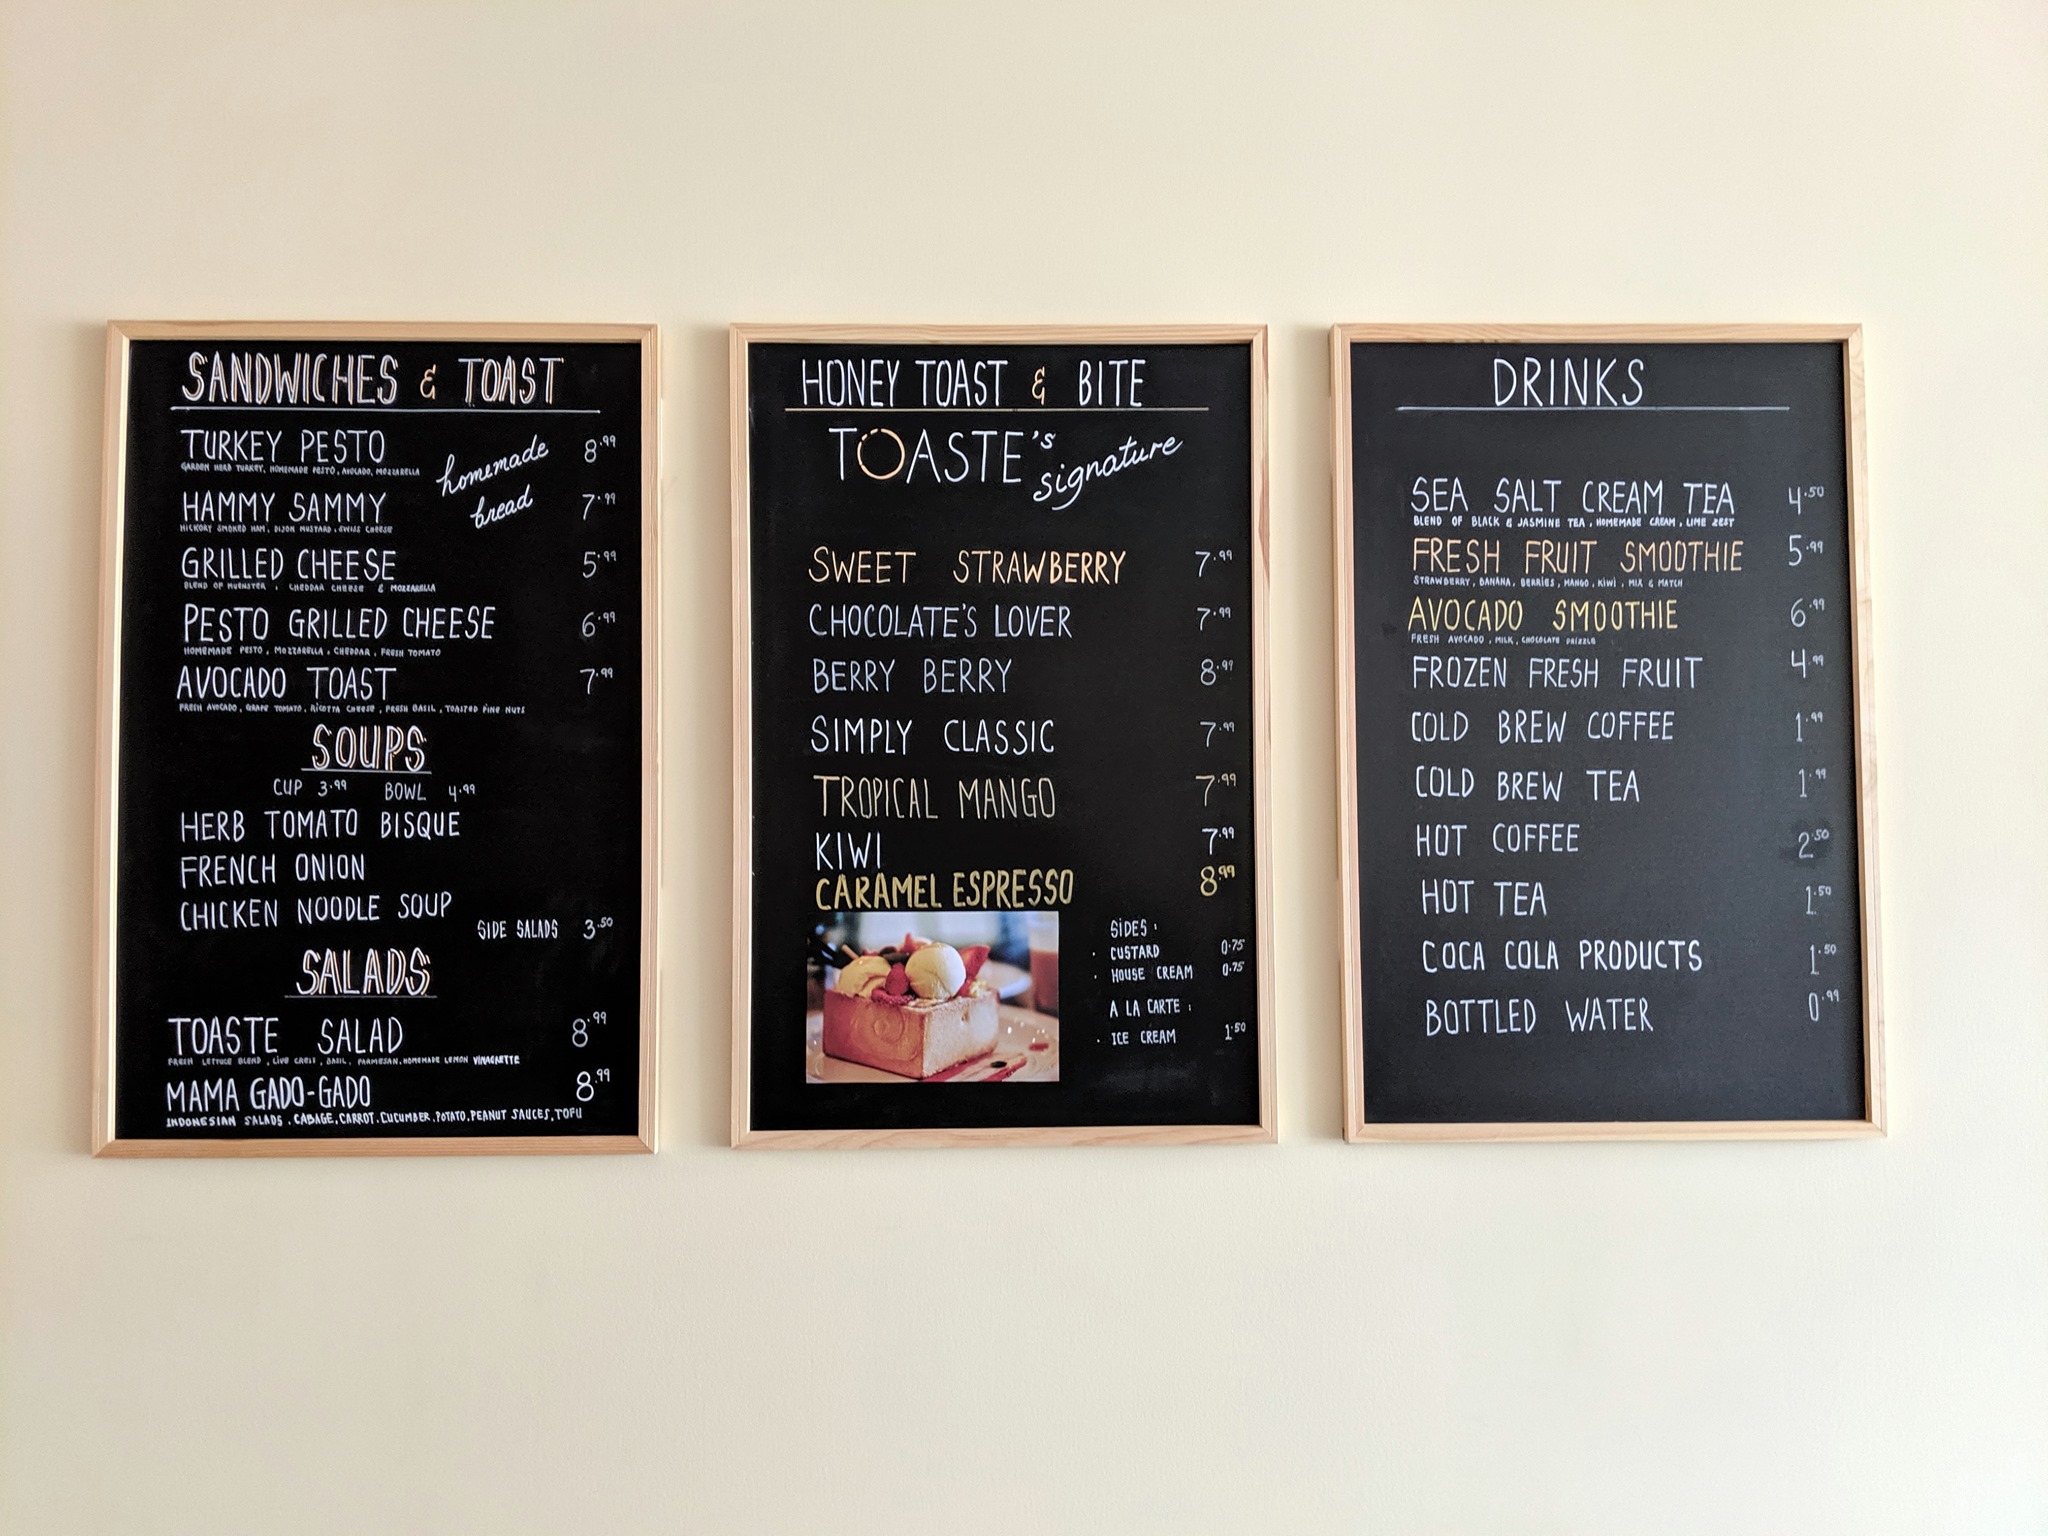 SANDWICHES & TOAST
homemade
bread
TURKEY PESTO 8.99
GARDEN HERB TURKEY, HOMEMADE PESTO, AVOCADO, MOZZARELLA
HAMMY SAMMY 7.99
HICKORY SMOKED HAM, DIJON MUSTARD, SWISS CHEESE
GRILLED CHEESE 5.99
BLEND OF MUENSTER, CHEDDAR CHEESE & MOZZARELLA
PESTO GRILLED CHEESE 6.99
HOMEMADE PESTO, MOZZARELLA, CHEDDAR, FRESH TOMATO
AVOCADO TOAST 7.99
FRESH AVOCADO, GRAPE TOMATO, RICOTTA CHEESE, FRESH BASIL, TOASTED PINE NUTS
SOUPS
CUP 3.99 BOWL 4.99
HERB TOMATO BISQUE
FRENCH ONION
CHICKEN NOODLE SOUP
SIDE SALADS 3.50
SALADS
TOASTE SALAD 8.99
FRESH LETTUCE BLEND, LIVE CRESS, BASIL, PARMESAN, HOMEMADE LEMON VINAGRETTE
MAMA GADO-GADO 8.99
INDONESIAN SALADS, CABAGE, CARROT, CUCUMBER, POTATO, PEANUT SAUCES, TOFU
HONEY TOAST & BITE
TOASTE's signature
SWEET STRAWBERRY 7.99
CHOCOLATE'S LOVER 7.99
BERRY BERRY 8.99
SIMPLY CLASSIC 7.99
TROPICAL MANGO 7.99
KIWI 7.99
CARAMEL ESPRESSO 8.99
SIDES:
· CUSTARD 0.75
· HOUSE CREAM 0.75
A LA CARTE:
· ICE CREAM 1.50
DRINKS
SEA SALT CREAM TEA 4.50
BLEND OF BLACK & JASMINE TEA, HOMEMADE CREAM, LIME ZEST
FRESH FRUIT SMOOTHIE 5.99
STRAWBERRY, BANANA, BERRIES, MANGO, KIWI, MIX & MATCH
AVOCADO SMOOTHIE 6.99
FRESH AVOCADO, MILK, CHOCOLATE DRIZZLE
FROZEN FRESH FRUIT 4.99
COLD BREW COFFEE 1.99
COLD BREW TEA 1.99
HOT COFFEE 2.50
HOT TEA 1.50
COCA COLA PRODUCTS 1.50
BOTTLED WATER 0.99